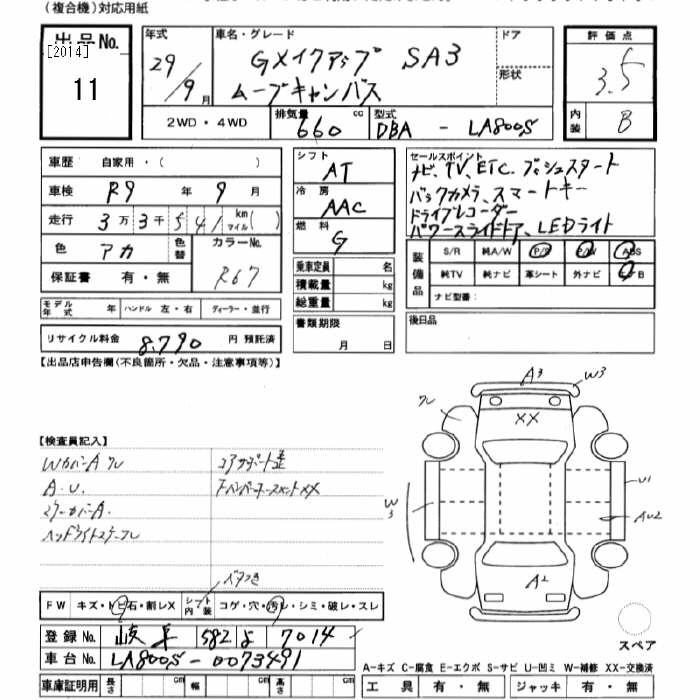 (複合機)対応用紙
出品No.
[2014]
11
年式
29/9月
車名・グレード
Gメイクアップ SA3
ムーブキャンバス
ドア
形状
評価点
3.5
内装
B
2WD・4WD
排気量
660 cc
型式
DBA - LA800S
車歴 自家用・( )
車検 R9 年 9 月
走行 3万3千541 km マイル( )
色 アカ
色替
カラーNo.
R67
保証書 有・無
モデル年式 年 ハンドル 左・右 ディーラー・並行
リサイクル料金 8,790 円 預託済
シフト
AT
冷房
AAC
燃料
G
乗車定員 名
積載量 kg
総重量 kg
書類期限
月 日
セールスポイント
ナビ、TV、ETC、プッシュスタート
バックカメラ、スマートキー
ドライブレコーダー
パワースライドドア、LEDライト
装備品
S/R 純A/W P/S P/W ABS
純TV 純ナビ 革シート 外ナビ B
ナビ型番:
後日品
【出品店申告欄(不良箇所・欠品・注意事項等)】
【検査員記入】
WカバーA ワレ
コアサポート歪
A.U.
ヘッドライトステーワレ
A3
W3
ワレ
XX
W3
U1
AU2
A2
スペア
ベタつき
FW キズ・トビ石・割レX
シート内装 コゲ・穴・汚レ・シミ・破レ・スレ
登録No. 岐阜 582 よ 7014
車台No. LA800S-0073491
車庫証明用 長さ cm 幅 cm 高さ cm
A-キズ C-腐食 E-エクボ S-サビ U-凹ミ W-補修 XX-交換済
工具 有・無 ジャッキ 有・無